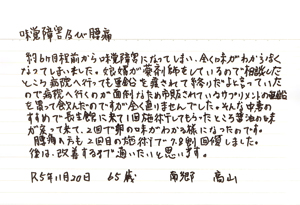 味覚障害及び腰痛
約6か月程前から味覚障害になってしまい、全く味がわからなく
なってしまいました。娘婿が薬剤師をしているので相談した
ところ病院へ行っても亜鉛を出されて終りだよと言っていた
ので病院へ行くのが面倒なため市販されているサプリメントの亜鉛
を買って飲んだのですが全く直りませんでした。そんな中妻の
すすめで長生館に来て1回施術してもらったところ醤油の味
が戻って来て、2回で卵の味がわかる様になったのです。
腰痛の方も2回目の施術で7.8割回復しました。
後は、改善するまで通いたいと思います。
R5年11月20日 65歳 高山